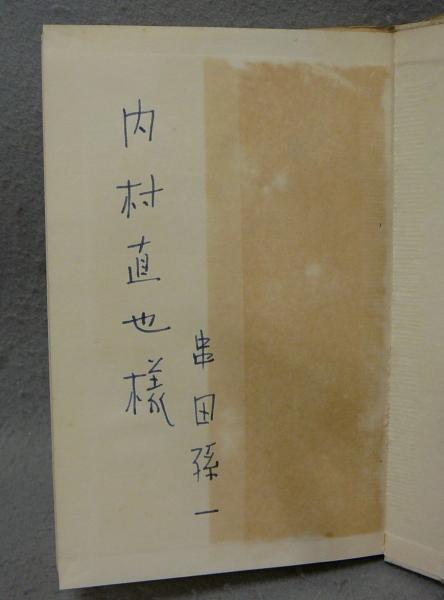 串田孫一
内村直也様